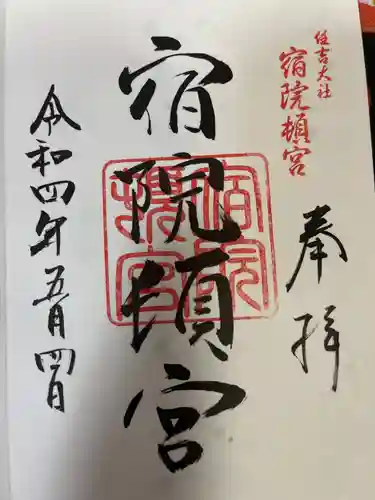 住吉大社
宿院頓宮
奉拝
宿院頓宮
宿院頓宮
令和四年五月四日